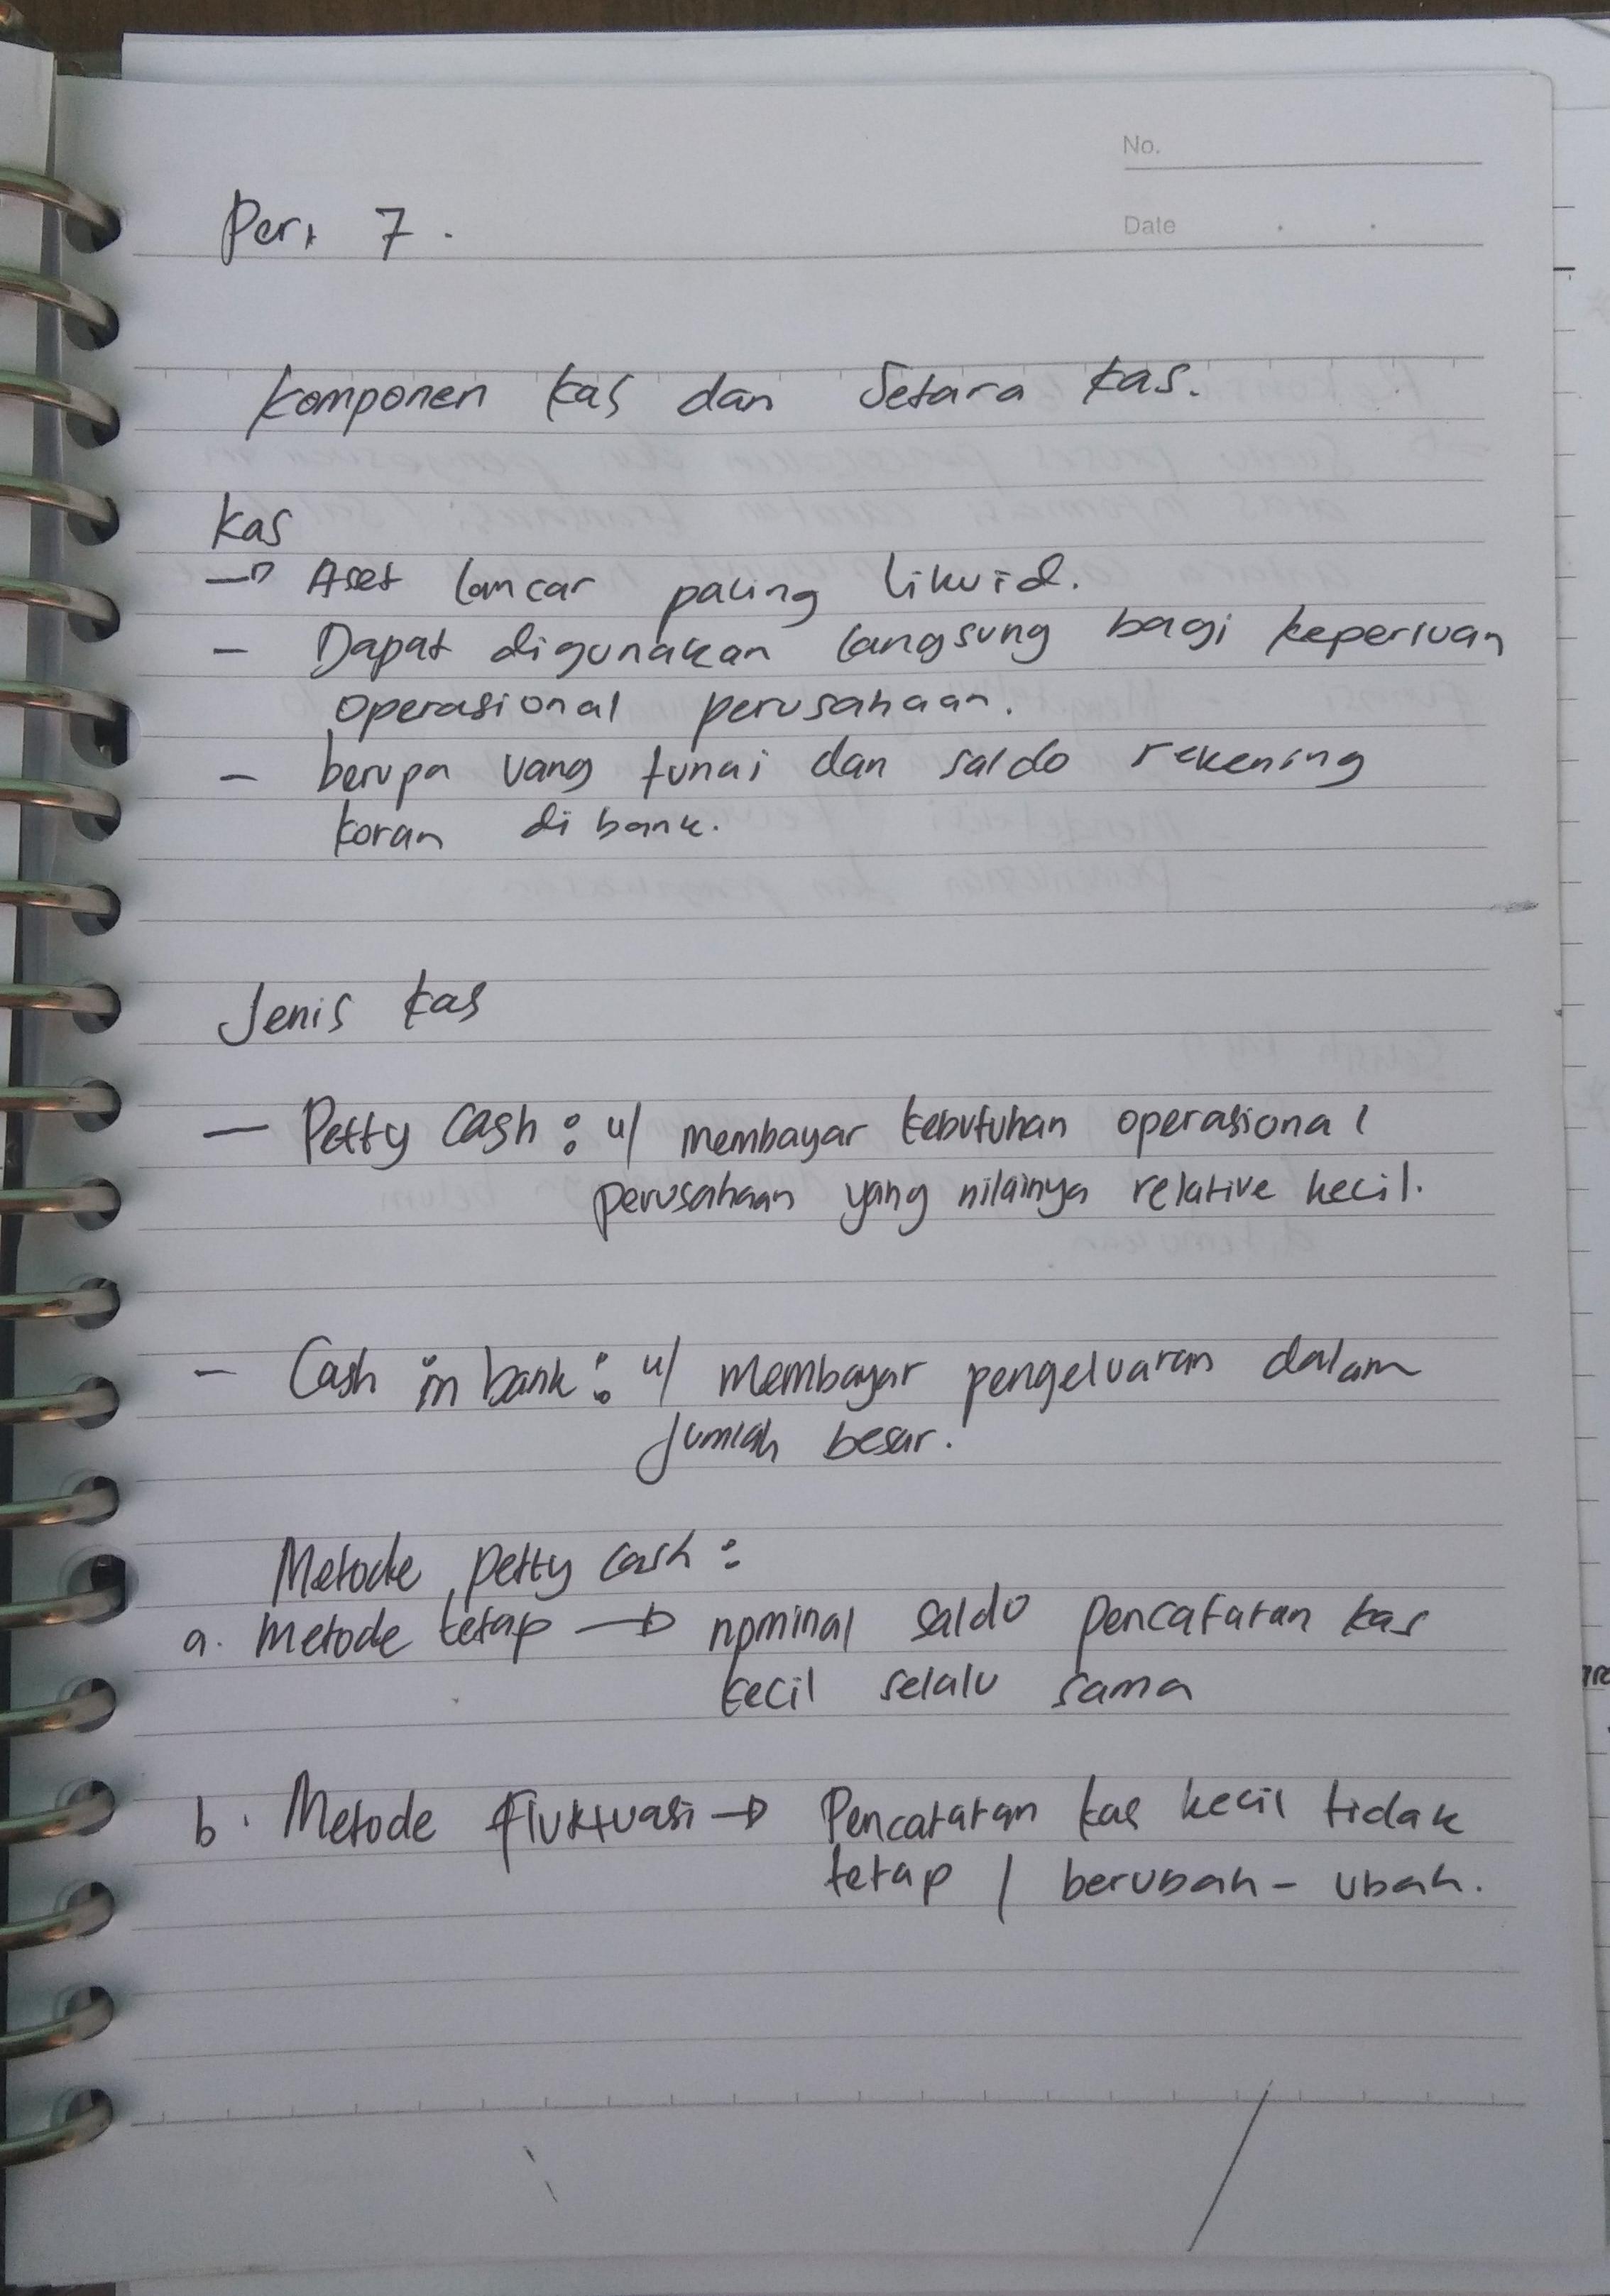 No.
Date
Per. 7.
Komponen kas dan Setara kas.
Kas
→ Aset lancar paling likuid.
- Dapat digunakan langsung bagi keperluan
operasional perusahaan.
- berupa uang tunai dan saldo rekening
koran di bank.
Jenis kas
- Petty Cash : u/ membayar kebutuhan operasional
perusahaan yang nilainya relative kecil.
- Cash in bank : u/ membayar pengeluaran dalam
jumlah besar.
Metode petty cash :
a. Metode tetap → nominal saldo pencatatan kas
kecil selalu sama
b. Metode fluktuasi → Pencatatan kas kecil tidak
tetap / berubah - ubah.